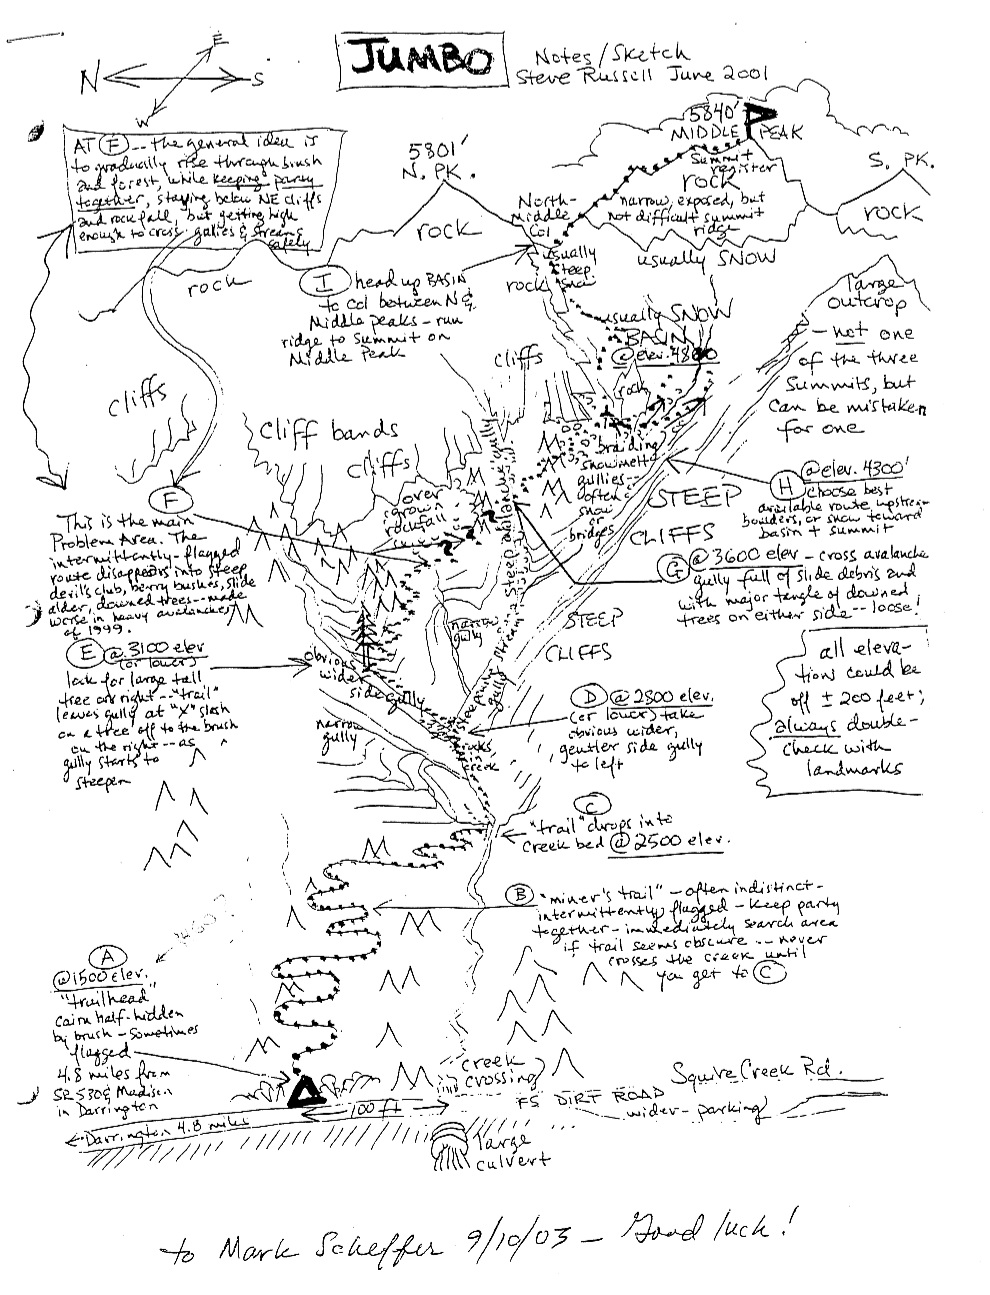 JUMBO
Notes/Sketch
Steve Russell June 2001
N
S
E
W
AT F -- the general idea is
to gradually rise through brush
and forest, while keeping party
together, staying below NE cliffs
and rockfall, but getting high
enough to cross gullies & streams
safely
5801'
N. PK.
5840'
MIDDLE PEAK
Summit
register
S. PK.
rock
rock
narrow, exposed, but
not difficult summit
ridge
rock
North-
Middle
Col
usually
steep
snow
rock
usually SNOW
rock
I head up BASIN
to Col between N &
Middle peaks - run
ridge to Summit on
Middle Peak
usually SNOW
BASIN
@ elev. 4800
large
outcrop
- not one
of the three
Summits, but
can be mistaken
for one
cliffs
cliffs
rock
cliff bands
cliffs
braiding
snowmelt
gullies--
often
snow
or
bridges
H @ elev. 4300'
choose best
available route, upstream
boulders, or snow toward
basin & summit
STEEP
CLIFFS
F
over
grown
rockfall
Steep avalanche gully
This is the main
Problem Area. The
intermittently-flagged
route disappears into steep
devil's club, berry bushes, slide
alder, downed trees -- made
worse in heavy avalanches
of 1999.
G @ 3600 elev - cross avalanche
gully full of slide debris and
with major tangle of downed
trees on either side -- loose!
STEEP
CLIFFS
narrow
gully
E @ 3100 elev
(or lower)
look for large tall
tree on right -- "trail"
leaves gully at "X" slash
on a tree off to the brush
on the right -- as
gully starts to
steepen
obvious
wider
side gully
all eleva-
tion could be
off ± 200 feet;
always double-
check with
landmarks
D @ 2800 elev.
(or lower) take
obvious wider,
gentler side gully
to left
narrow
gully
rocks
creek
C
"trail" drops into
Creek bed @ 2500 elev.
B "miner's trail" - often indistinct -
intermittently flagged - keep party
together - immediately search area
if trail seems obscure -- never
crosses the creek until
you get to C
A
@ 1500 elev.
"trailhead"
cairn half-hidden
by brush - sometimes
flagged
4.8 miles from
SR 530 & Madison
in Darrington
creek
crossing
Squire Creek Rd.
FS DIRT ROAD
wider - parking
100 ft
Darrington 4.8 miles
large
culvert
to Mark Scheffer 9/10/03 - Good luck!